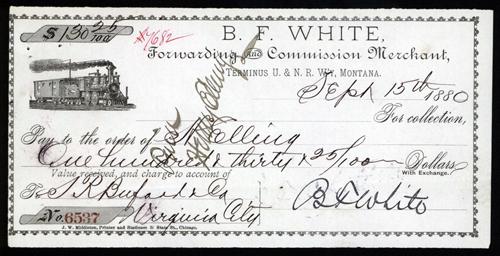 $130 25/100
#7682
B. F. WHITE,
Forwarding and Commission Merchant,
TERMINUS U. & N. R. W'Y, MONTANA.
Sept 15th 1880
For collection,
Pay to the order of H Elling
One hundred & thirty & 25/100 Dollars
Value received, and charge to account of With Exchange.
To S. R. Buford & Co B F White
No. 6537 Virginia City
J. W. Middleton, Printer and Stationer State St., Chicago.